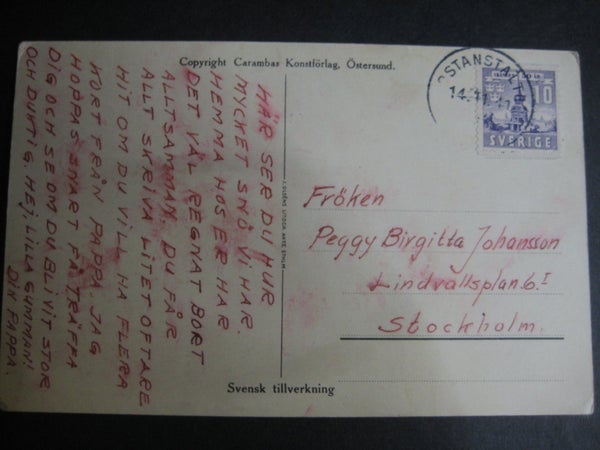 Copyright Carambas Konstförlag, Östersund.
HÄR SER DU HUR
MYCKET SNÖ VI HAR.
HEMMA HOS ER HAR
DET VÄL REGNAT BORT
ALLTSAMMAN. DU FÅR
ALLT SKRIVA LITET OFTARE
HIT OM DU VILL HA FLERA
KORT FRÅN PAPPA. JAG
HOPPAS SNART FÅ TRÄFFA
DIG OCH SE OM DU BLIVIT STOR
OCH DUKTIG. HEJ, LILLA GUMMAN!
DIN PAPPA.
STANSTALT
14.
10
SVERIGE
Fröken
Peggy Birgitta Johansson
Lindvallsplan 6. I
Stockholm.
Svensk tillverkning